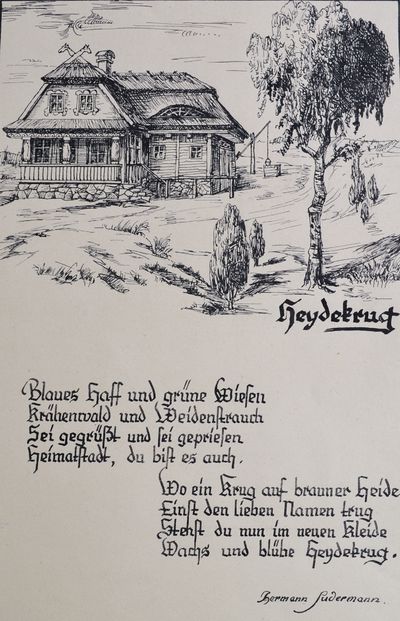 Heydekrug
Blaues Haff und grüne Wiesen
Krähenwald und Weidenstrauch
Sei gegrüßt und sei gepriesen
Heimatstadt, du bist es auch.
Wo ein Krug auf brauner Heide
Einst den lieben Namen trug
Stehst du nun im neuen Kleide
Wachs und blühe Heydekrug.
Hermann Sudermann.